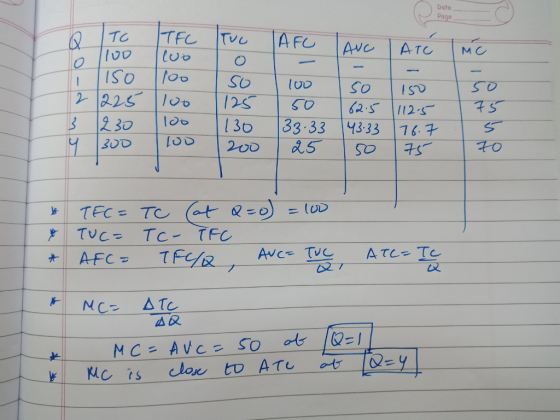 Date
Page
Q TC TFC TVC AFC AVC ATC MC
0 100 100 0 — — — —
1 150 100 50 100 50 150 50
2 225 100 125 50 62.5 112.5 75
3 230 100 130 33.33 43.33 76.7 5
4 300 100 200 25 50 75 70
* TFC = TC (at Q=0) = 100
* TVC = TC - TFC
* AFC = TFC/Q, AVC = TVC/Q, ATC = TC/Q
* MC = ΔTC/ΔQ
* MC = AVC = 50 at Q=1
* MC is close to ATC at Q=4